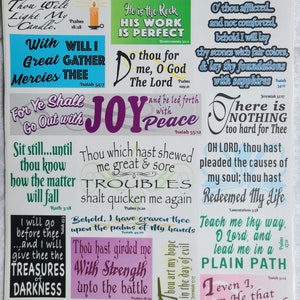 Thou Wilt
Light My
Candle.
Psalms 18:28
He is the Rock,
HIS WORK
IS PERFECT
Deuteronomy 32:4
O thou afflicted...
and not comforted,
behold I will lay
thy stones with fair colors,
& lay thy foundations
with sapphires
Isaiah 54:11
With
Great
Mercies
WILL I
GATHER
THEE
Isaiah 54:7
Do thou for
me, O God
The Lord
Psalms 109:21
Jeremiah 32:17
There is
NOTHING
too hard for Thee
For Ye Shall
Go Out with
JOY
and be led forth
with
Peace
Isaiah 55:12
Sit still...until
thou know
how the matter
will fall
Ruth 3:18
Thou which hast shewed
me great & sore
TROUBLES
shalt quicken me again
OH LORD, thou hast
pleaded the causes
of my soul; thou hast
Redeemed My Life
Lamentations 3:58
I will go
before thee
...and I will
give thee the
TREASURES
of
DARKNESS
Behold, I have graven thee
upon the palms of my hands
Thou hast girded me
With Strength
unto the battle
Thou art my hope
in the day of evil
Teach me thy way,
O Lord, and
lead me in a
PLAIN PATH
I, even I,